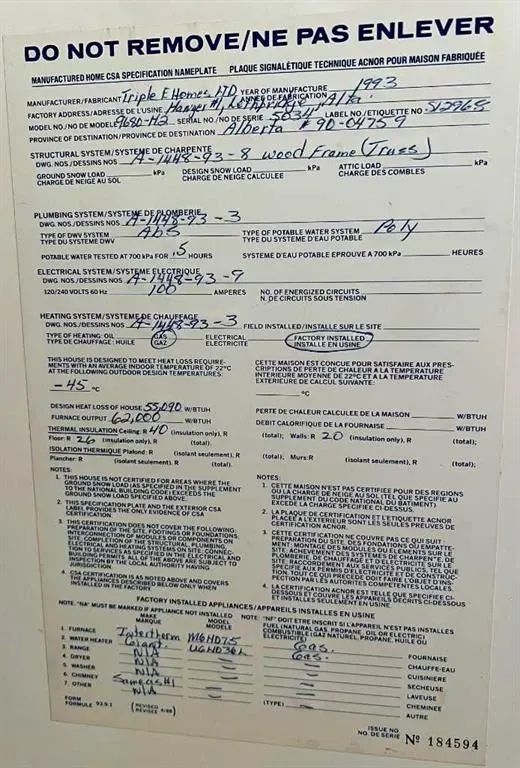 DO NOT REMOVE/NE PAS ENLEVER
MANUFACTURED HOME CSA SPECIFICATION NAMEPLATE PLAQUE SIGNALÉTIQUE TECHNIQUE ACNOR POUR MAISON FABRIQUÉE
MANUFACTURER/FABRICANT Triple E Homes LTD YEAR OF MANUFACTURE/ANNÉE DE FABRICATION 1993
FACTORY ADDRESS/ADRESSE DE L'USINE Hanger #1 Lethbridge Alta.
MODEL NO./NO DE MODÈLE 9680-H2 SERIAL NO./NO DE SERIE 5034 LABEL NO./ETIQUETTE NO 512968
PROVINCE OF DESTINATION/PROVINCE DE DESTINATION Alberta #90-04759
STRUCTURAL SYSTEM/SYSTÈME DE CHARPENTE
DWG. NOS./DESSINS NOS A-1448-93-8 wood Frame (Truss)
GROUND SNOW LOAD kPa DESIGN SNOW LOAD kPa ATTIC LOAD kPa
CHARGE DE NEIGE AU SOL CHARGE DE NEIGE CALCULEE CHARGE DES COMBLES
PLUMBING SYSTEM/SYSTÈME DE PLOMBERIE
DWG. NOS./DESSINS NOS A-1448-93-3
TYPE OF DWV SYSTEM Abs TYPE OF POTABLE WATER SYSTEM Poly
TYPE DU SYSTEME DWV TYPE DU SYSTEME D'EAU POTABLE
POTABLE WATER TESTED AT 700 kPa FOR .5 HOURS SYSTEME D'EAU POTABLE EPROUVE A 700 kPa HEURES
ELECTRICAL SYSTEM/SYSTEME ELECTRIQUE
DWG. NOS./DESSINS NOS A-1448-93-9
120/240 VOLTS 60 Hz 100 AMPERES NO. OF ENERGIZED CIRCUITS
N. DE CIRCUITS SOUS TENSION
HEATING SYSTEM/SYSTEME DE CHAUFFAGE
DWG. NOS./DESSINS NOS A-1448-93-3 FIELD INSTALLED/INSTALLE SUR LE SITE
TYPE OF HEATING: OIL GAS ELECTRICAL FACTORY INSTALLED
TYPE DE CHAUFFAGE: HUILE GAZ ELECTRICITE INSTALLE EN USINE
THIS HOUSE IS DESIGNED TO MEET HEAT LOSS REQUIREMENTS WITH AN AVERAGE INDOOR TEMPERATURE OF 22°C AT THE FOLLOWING OUTDOOR DESIGN TEMPERATURES:
-45 °C
CETTE MAISON EST CONCUE POUR SATISFAIRE AUX PRESCRIPTIONS DE PERTE DE CHALEUR A LA TEMPERATURE INTERIEURE MOYENNE DE 22°C ET A LA TEMPERATURE EXTERIEURE DE CALCUL SUIVANTE:
°C
DESIGN HEAT LOSS OF HOUSE 55,090 W/BTUH PERTE DE CHALEUR CALCULEE DE LA MAISON W/BTUH
FURNACE OUTPUT 62,000 W/BTUH DEBIT CALORIFIQUE DE LA FOURNAISE W/BTUH
THERMAL INSULATION Ceiling: R 40 (insulation only), R (total); Walls: R 20 (insulation only), R (total);
Floor: R 26 (insulation only), R (total);
ISOLATION THERMIQUE Plafond: R (isolant seulement), R (total), Murs: R (isolant seulement), R (total);
Plancher: R (isolant seulement), R (total).
NOTES:
1. THIS HOUSE IS NOT CERTIFIED FOR AREAS WHERE THE GROUND SNOW LOAD (AS SPECIFIED IN THE SUPPLEMENT TO THE NATIONAL BUILDING CODE) EXCEEDS THE GROUND SNOW LOAD SPECIFIED ABOVE.
2. THIS SPECIFICATION PLATE AND THE EXTERIOR CSA LABEL PROVIDES THE ONLY EVIDENCE OF CSA CERTIFICATION.
3. THIS CERTIFICATION DOES NOT COVER THE FOLLOWING: PREPARATION OF THE SITE, FOOTINGS OR FOUNDATIONS, INTERCONNECTION OF MODULES OR COMPONENTS ON SITE; COMPLETION OF THE STRUCTURAL, PLUMBING, ELECTRICAL AND HEATING SYSTEMS ON SITE; CONNECTION TO SERVICES AS SPECIFIED IN THE ELECTRICAL AND BUILDING PERMITS. ALL OF THE ABOVE ARE SUBJECT TO INSPECTION BY THE LOCAL AUTHORITY HAVING JURISDICTION.
4. CSA CERTIFICATION IS AS NOTED ABOVE AND COVERS THE APPLIANCES DESCRIBED BELOW ONLY WHEN INSTALLED IN THE FACTORY
NOTES:
1. CETTE MAISON N'EST PAS CERTIFIEE POUR DES REGIONS OU LA CHARGE DE NEIGE AU SOL (TEL QUE SPECIFIE AU SUPPLEMENT DU CODE NATIONAL DU BATIMENT) EXCEDE LA CHARGE SPECIFIEE CI-DESSUS.
2. LA PLAQUE DE CERTIFICATION ET L'ETIQUETTE ACNOR PLACEE A L'EXTERIEUR SONT LES SEULES PREUVES DE CERTIFICATION ACNOR.
3. CETTE CERTIFICATION NE COUVRE PAS CE QUI SUIT:
4. LA CERTIFICATION ACNOR EST TELLE QUE SPECIFIEE CI-DESSUS ET COUVRE LES APPAREILS DECRITS CI-DESSOUS ET INSTALLES SEULEMENT EN USINE.
FACTORY INSTALLED APPLIANCES/APPAREILS INSTALLES EN USINE
NOTE. "NA" MUST BE MARKED IF APPLIANCE NOT INSTALLED NOTE: "NF" DOIT ETRE INSCRIT SI L'APPAREIL N'EST PAS INSTALLE
MAKE MODEL FUEL (NATURAL GAS, PROPANE, OIL OR ELECTRIC)
MARQUE MODELE COMBUSTIBLE (GAZ NATUREL, PROPANE, HUILE OU ELECTRICITE)
1. FURNACE Intertherm MGHD75 Gas. FOURNAISE
2. WATER HEATER Giant. UGHD36L Gas. CHAUFFE-EAU
3. RANGE N/A CUISINIERE
4. DRYER N/A SECHEUSE
5. WASHER N/A LAVEUSE
6. CHIMNEY (TYPE) CHEMINEE
7. OTHER N/A AUTRE
FORM
FORMULE 93.9.1 (REVISED
REVISEE 4/88)
ISSUE NO
NO. DE SERIE Nº 184594